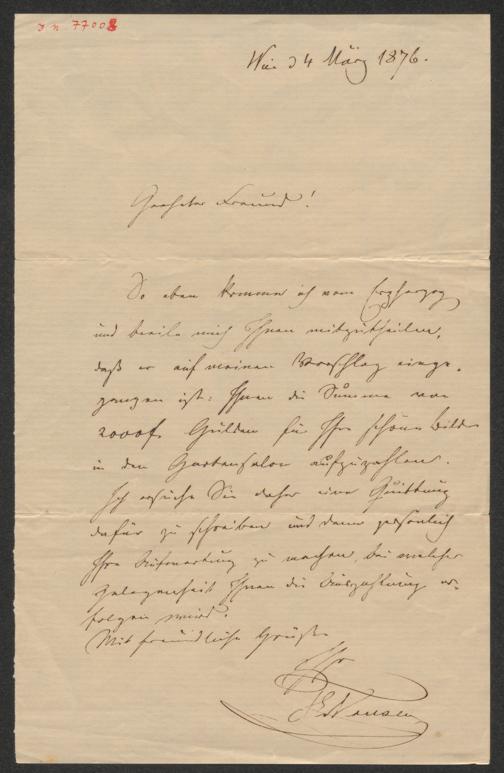 J.N. 77008
Wien d 4 März 1876.
Geehrter Freund!
So eben komme ich vom Erzherzog
und beeile mich Ihnen mitzutheilen,
daß er auf meinen Vorschlag einge-
gangen ist: Ihnen die Summe von
2000f. Gulden für Ihre schönen Bilder
in den Gartensalon aufzuzahlen.
Ich ersuche Sie daher eine Quittung
dafür zu schreiben und dann persönlich
Ihre Aufwartung zu machen, bei welcher
Gelegenheit Ihnen die Auszahlung er-
folgen wird.
Mit freundliche Grüße
Ihr
Hansen